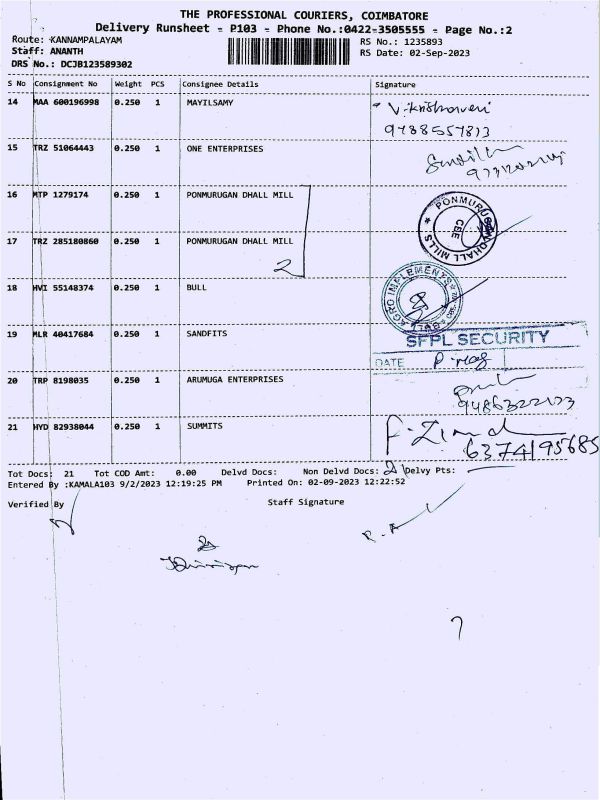 THE PROFESSIONAL COURIERS, COIMBATORE
Delivery Runsheet - P103 - Phone No.:0422-3505555 - Page No.:2
Route: KANNAMPALAYAM RS No.: 1235893
Staff: ANANTH RS Date: 02-Sep-2023
DRS No.: DCJB123589302
S No Consignment No Weight PCS Consignee Details Signature
14 MAA 600196998 0.250 1 MAYILSAMY
9788557813
15 TRZ 51064443 0.250 1 ONE ENTERPRISES
16 MTP 1279174 0.250 1 PONMURUGAN DHALL MILL
PONMURUGAN DHALL MILLS
CBE
17 TRZ 285180860 0.250 1 PONMURUGAN DHALL MILL
2
18 HVI 55148374 0.250 1 BULL
BULL AGRO IMPLEMENTS
19 MLR 40417684 0.250 1 SANDFITS
SFPL SECURITY
DATE
20 TRP 8198035 0.250 1 ARUMUGA ENTERPRISES
21 HYD 82938044 0.250 1 SUMMITS
6374195685
Tot Docs: 21 Tot COD Amt: 0.00 Delvd Docs: Non Delvd Docs: 21 Delvy Pts:
Entered By :KAMALA103 9/2/2023 12:19:25 PM Printed On: 02-09-2023 12:22:52
Verified By Staff Signature